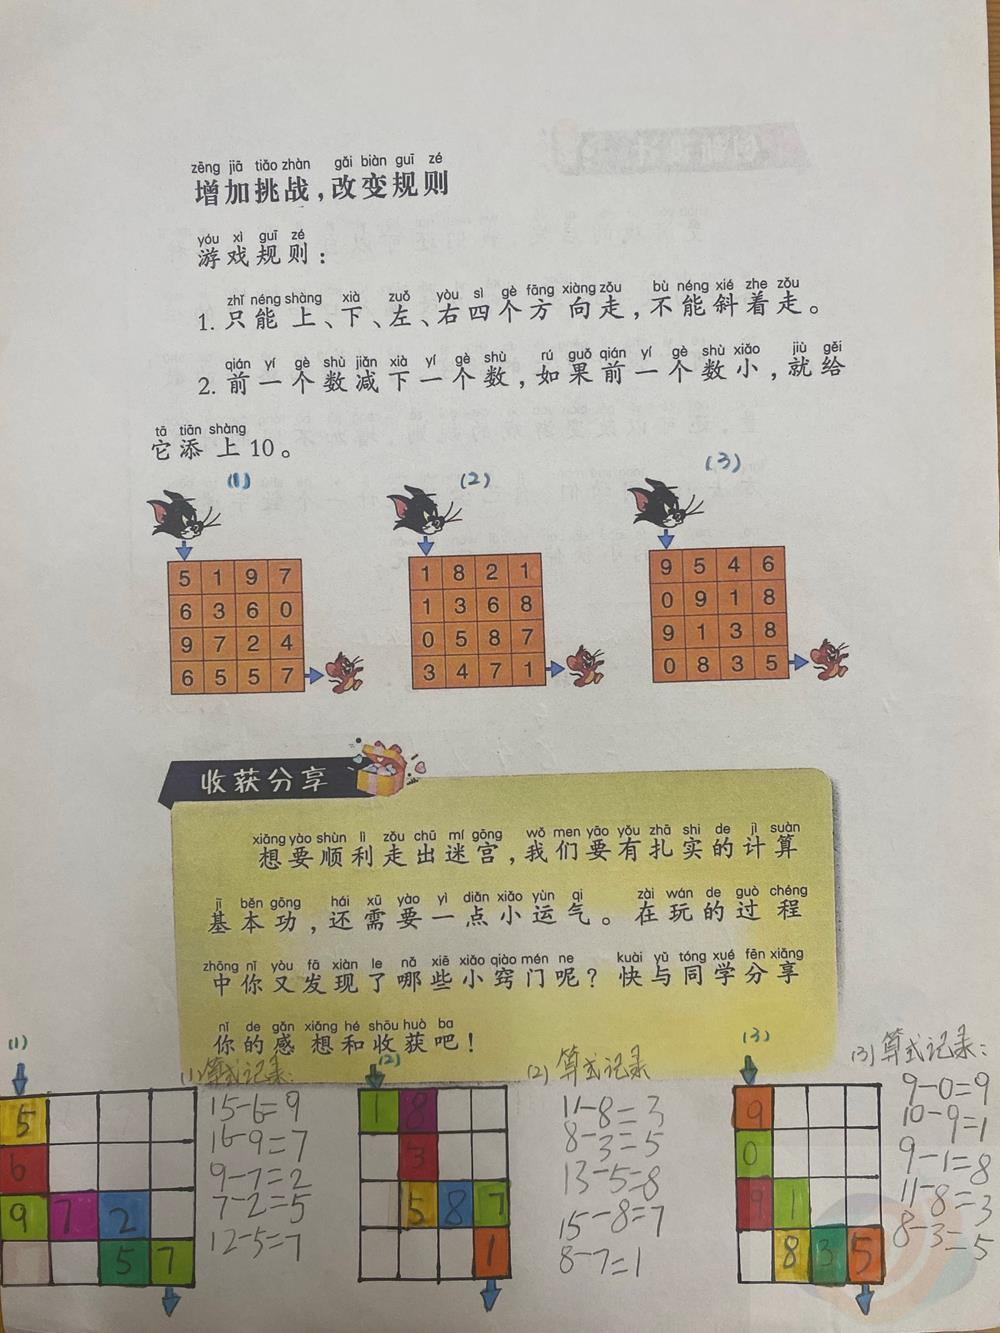 zēng jiā tiǎo zhàn gǎi biàn guī zé
增加挑战，改变规则
yóu xì guī zé
游戏规则：
zhǐ néng shàng xià zuǒ yòu sì gè fāng xiàng zǒu bù néng xié zhe zǒu
1. 只能上、下、左、右四个方向走，不能斜着走。
qián yí gè shù jiǎn xià yí gè shù rú guǒ qián yí gè shù xiǎo jiù gěi
2. 前一个数减下一个数，如果前一个数小，就给
tā tiān shàng
它添上10。
(1) (2) (3)
5 1 9 7 1 8 2 1 9 5 4 6
6 3 6 0 1 3 6 8 0 9 1 8
9 7 2 4 0 5 8 7 9 1 3 8
6 5 5 7 3 4 7 1 0 8 3 5
收获分享
xiǎng yào shùn lì zǒu chū mí gōng wǒ men yāo yǒu zhā shi de jì suàn
想要顺利走出迷宫，我们要有扎实的计算
jī běn gōng hái xū yào yì diǎn xiǎo yùn qi zài wán de guò chéng
基本功，还需要一点小运气。在玩的过程
zhōng nǐ yòu fā xiàn le nǎ xiē xiǎo qiào mén ne kuài yǔ tóng xué fēn xiǎng
中你又发现了哪些小窍门呢？快与同学分享
nǐ de gǎn xiǎng hé shōu huò ba
你的感想和收获吧！
(1)
5
6
9 7 2
5 7
(1) 算式记录：
15-6=9
16-9=7
9-7=2
7-2=5
12-5=7
(2)
1 8
3
5 8 7
1
(2) 算式记录
11-8=3
8-3=5
13-5=8
15-8=7
8-7=1
(3)
9
0
9 1
8 3 5
(3) 算式记录：
9-0=9
10-9=1
9-1=8
11-8=3
8-3=5